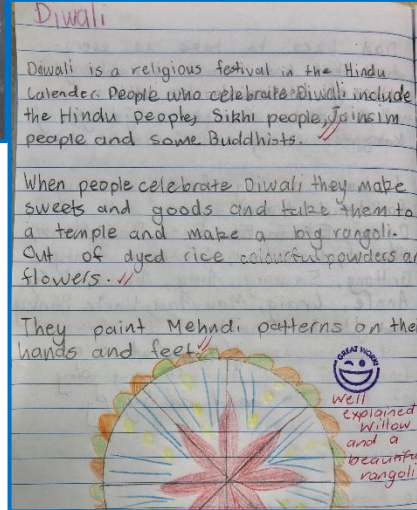 Diwali
Dawali is a religious festival in the Hindu
Calender. People who celebrate Diwali include
the Hindu people, Sikhi people, Jainsim
people and some Buddhists.
When people celebrate Diwali they make
sweets and goods and take them to
a temple and make a big rangoli.
Out of dyed rice colourful powders an
flowers.
They paint Mehndi patterns on the
hands and feet.
GREAT WORK!
Well
explained
Willow
and a
beautiful
rangoli